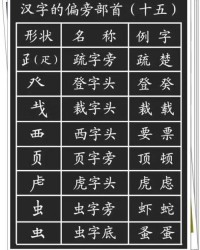 汉字的偏旁部首（十五）
形状 名称 例字
𤴔（疋） 疏字旁 疏 楚
癶 登字头 登 癸
𢦏 裁字头 裁 载
覀 西字头 要 票
页 页字旁 顶 顿
虍 虎字头 虎 虑
虫 虫字旁 虾 蛇
虫 虫字底 蚤 蛋